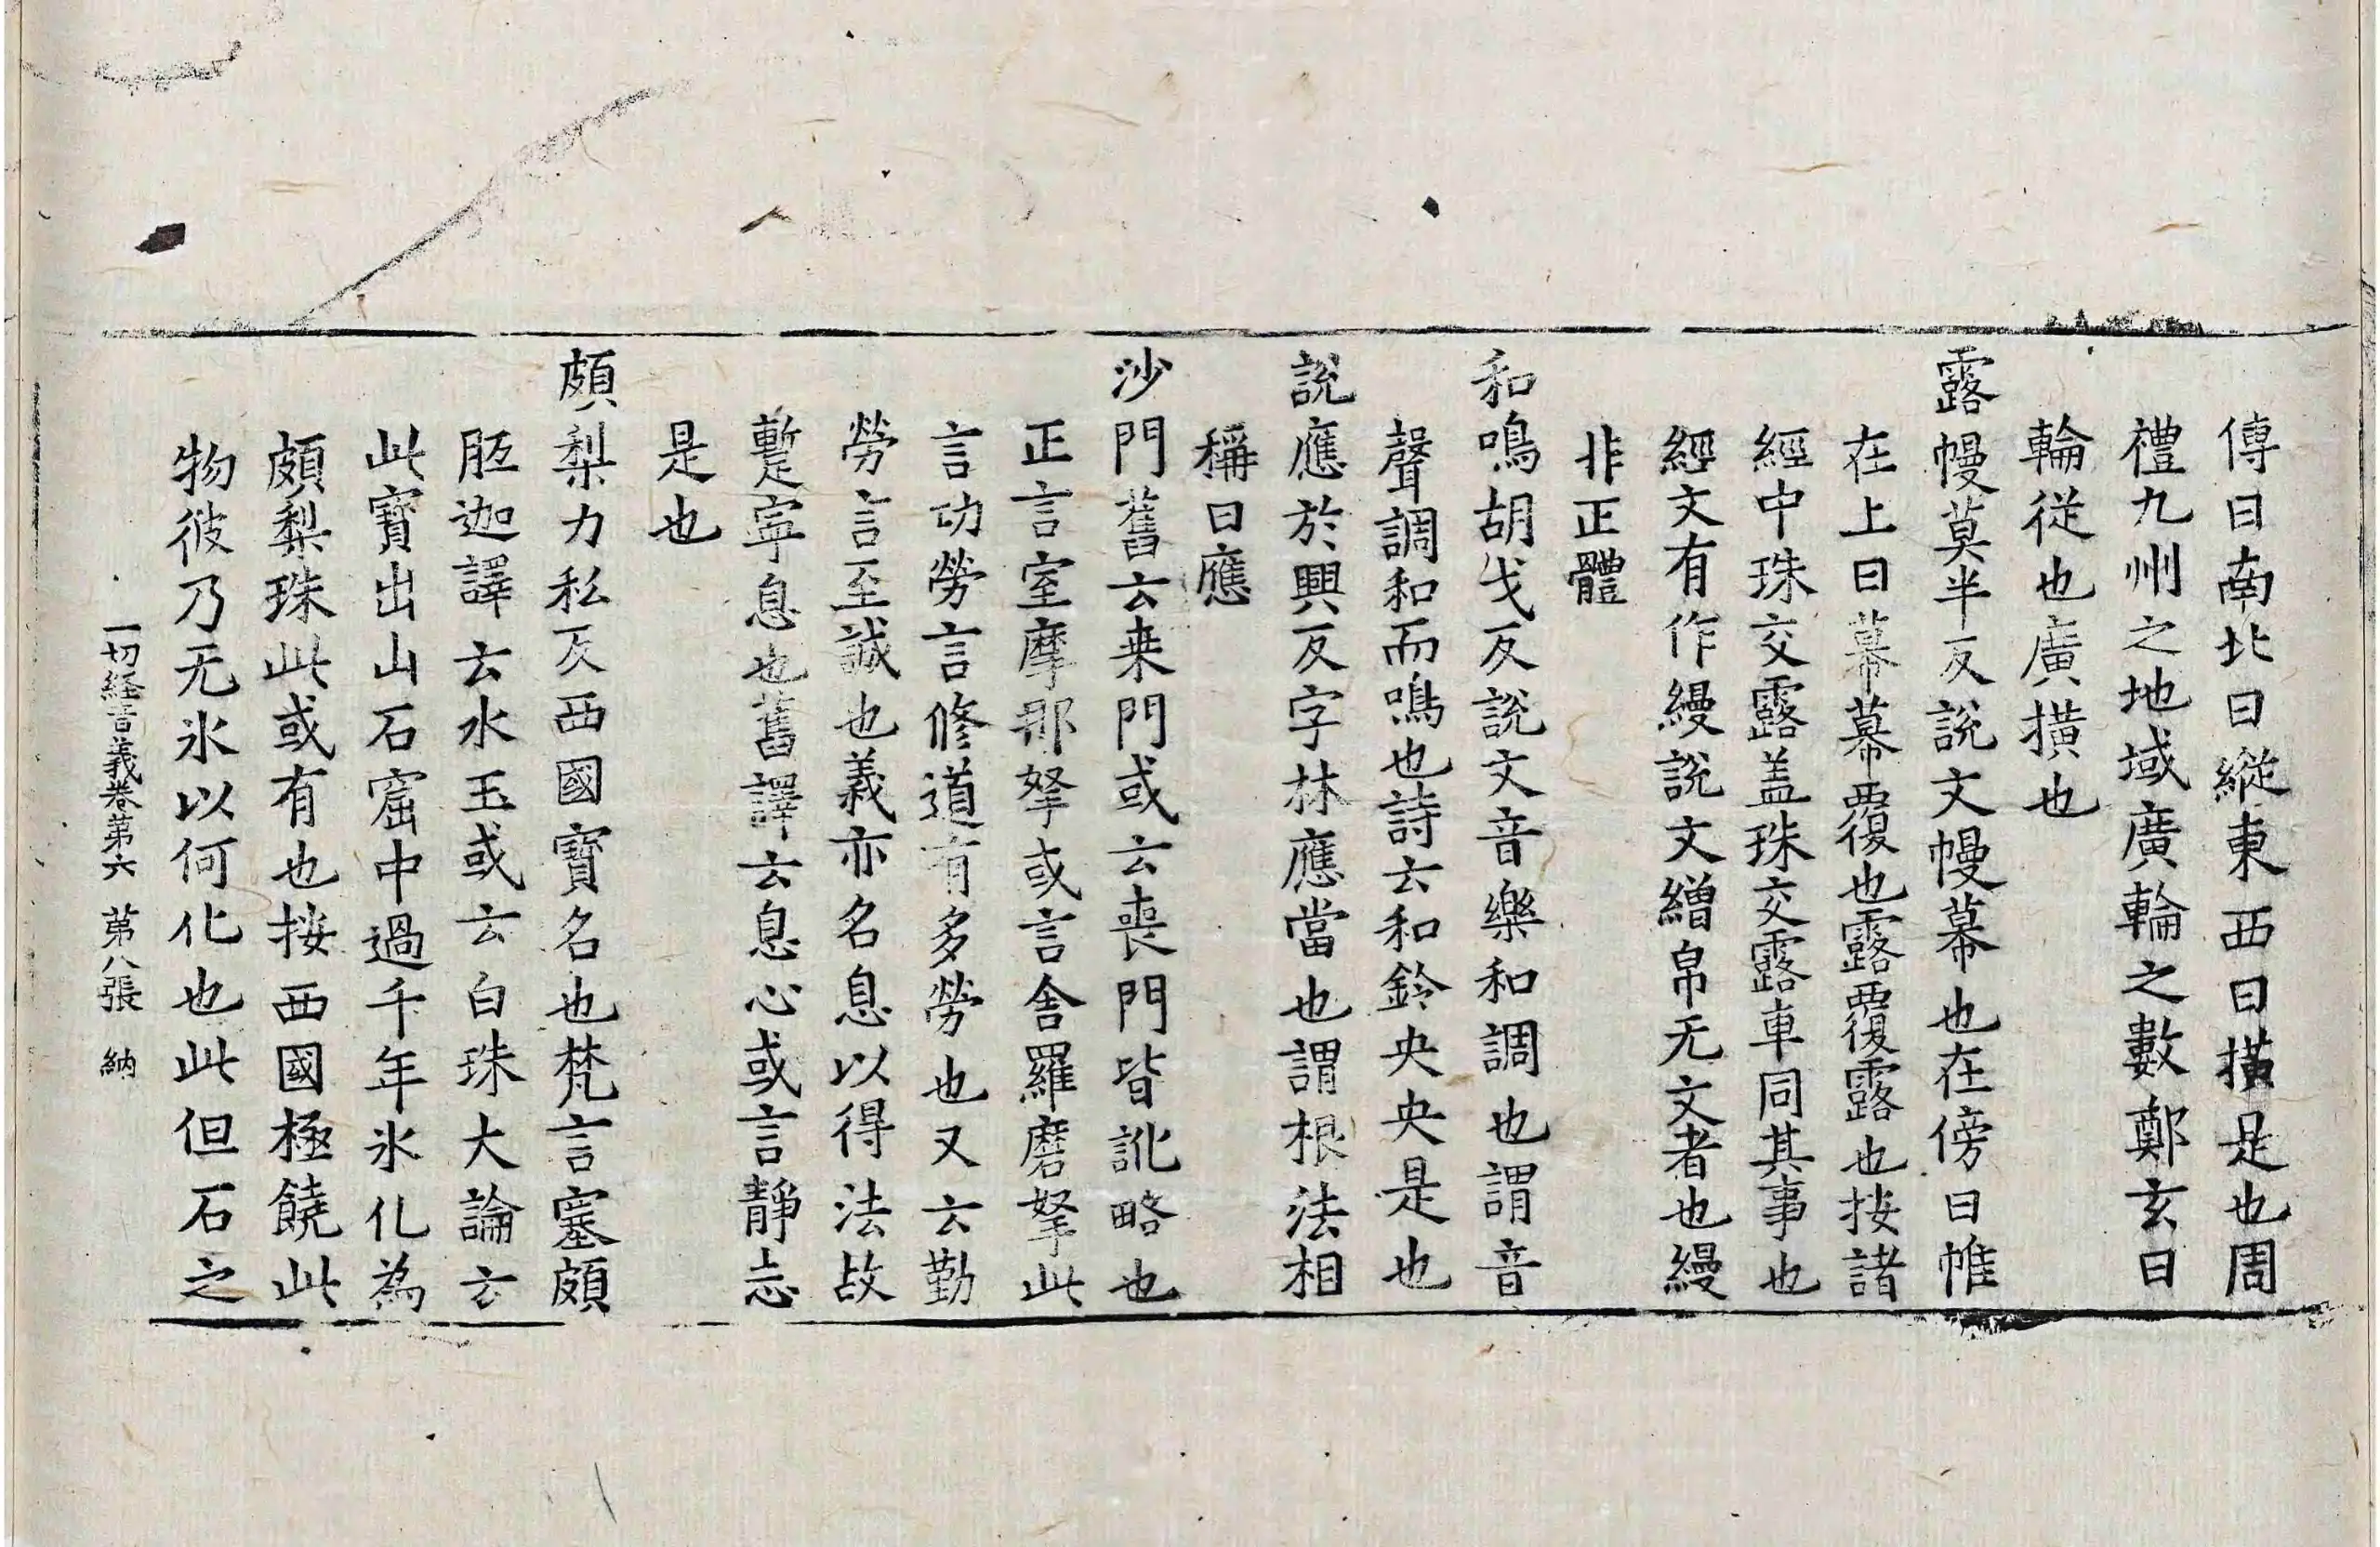 傳曰南北曰縱東西曰橫是也周
禮九州之地域廣輪之數鄭玄曰
輪從也廣橫也
露幔莫半反說文幔幕也在傍曰帷
在上曰幕幕覆也露覆露也按諸
經中珠交露盖珠交露車同其事也
經文有作縵說文繒帛无文者也縵
非正體
和鳴胡戈反說文音樂和調也謂音
聲調和而鳴也詩云和鈴央央是也
說應於興反字林應當也謂根法相
稱曰應
沙門舊云桒門或云喪門皆訛略也
正言室摩那拏或言舍羅磨拏此
言功勞言修道有多勞也又云勤
勞言至誠也義亦名息以得法故
蹔寧息也舊譯云息心或言靜志
是也
頗梨力私反西國寶名也梵言塞頗
胝迦譯云水玉或云白珠大論云
此寶出山石窟中過千年氷化為
頗梨珠此或有也按西國極饒此
物彼乃无氷以何化也此但石之
一切経音義卷第六 第八張 納